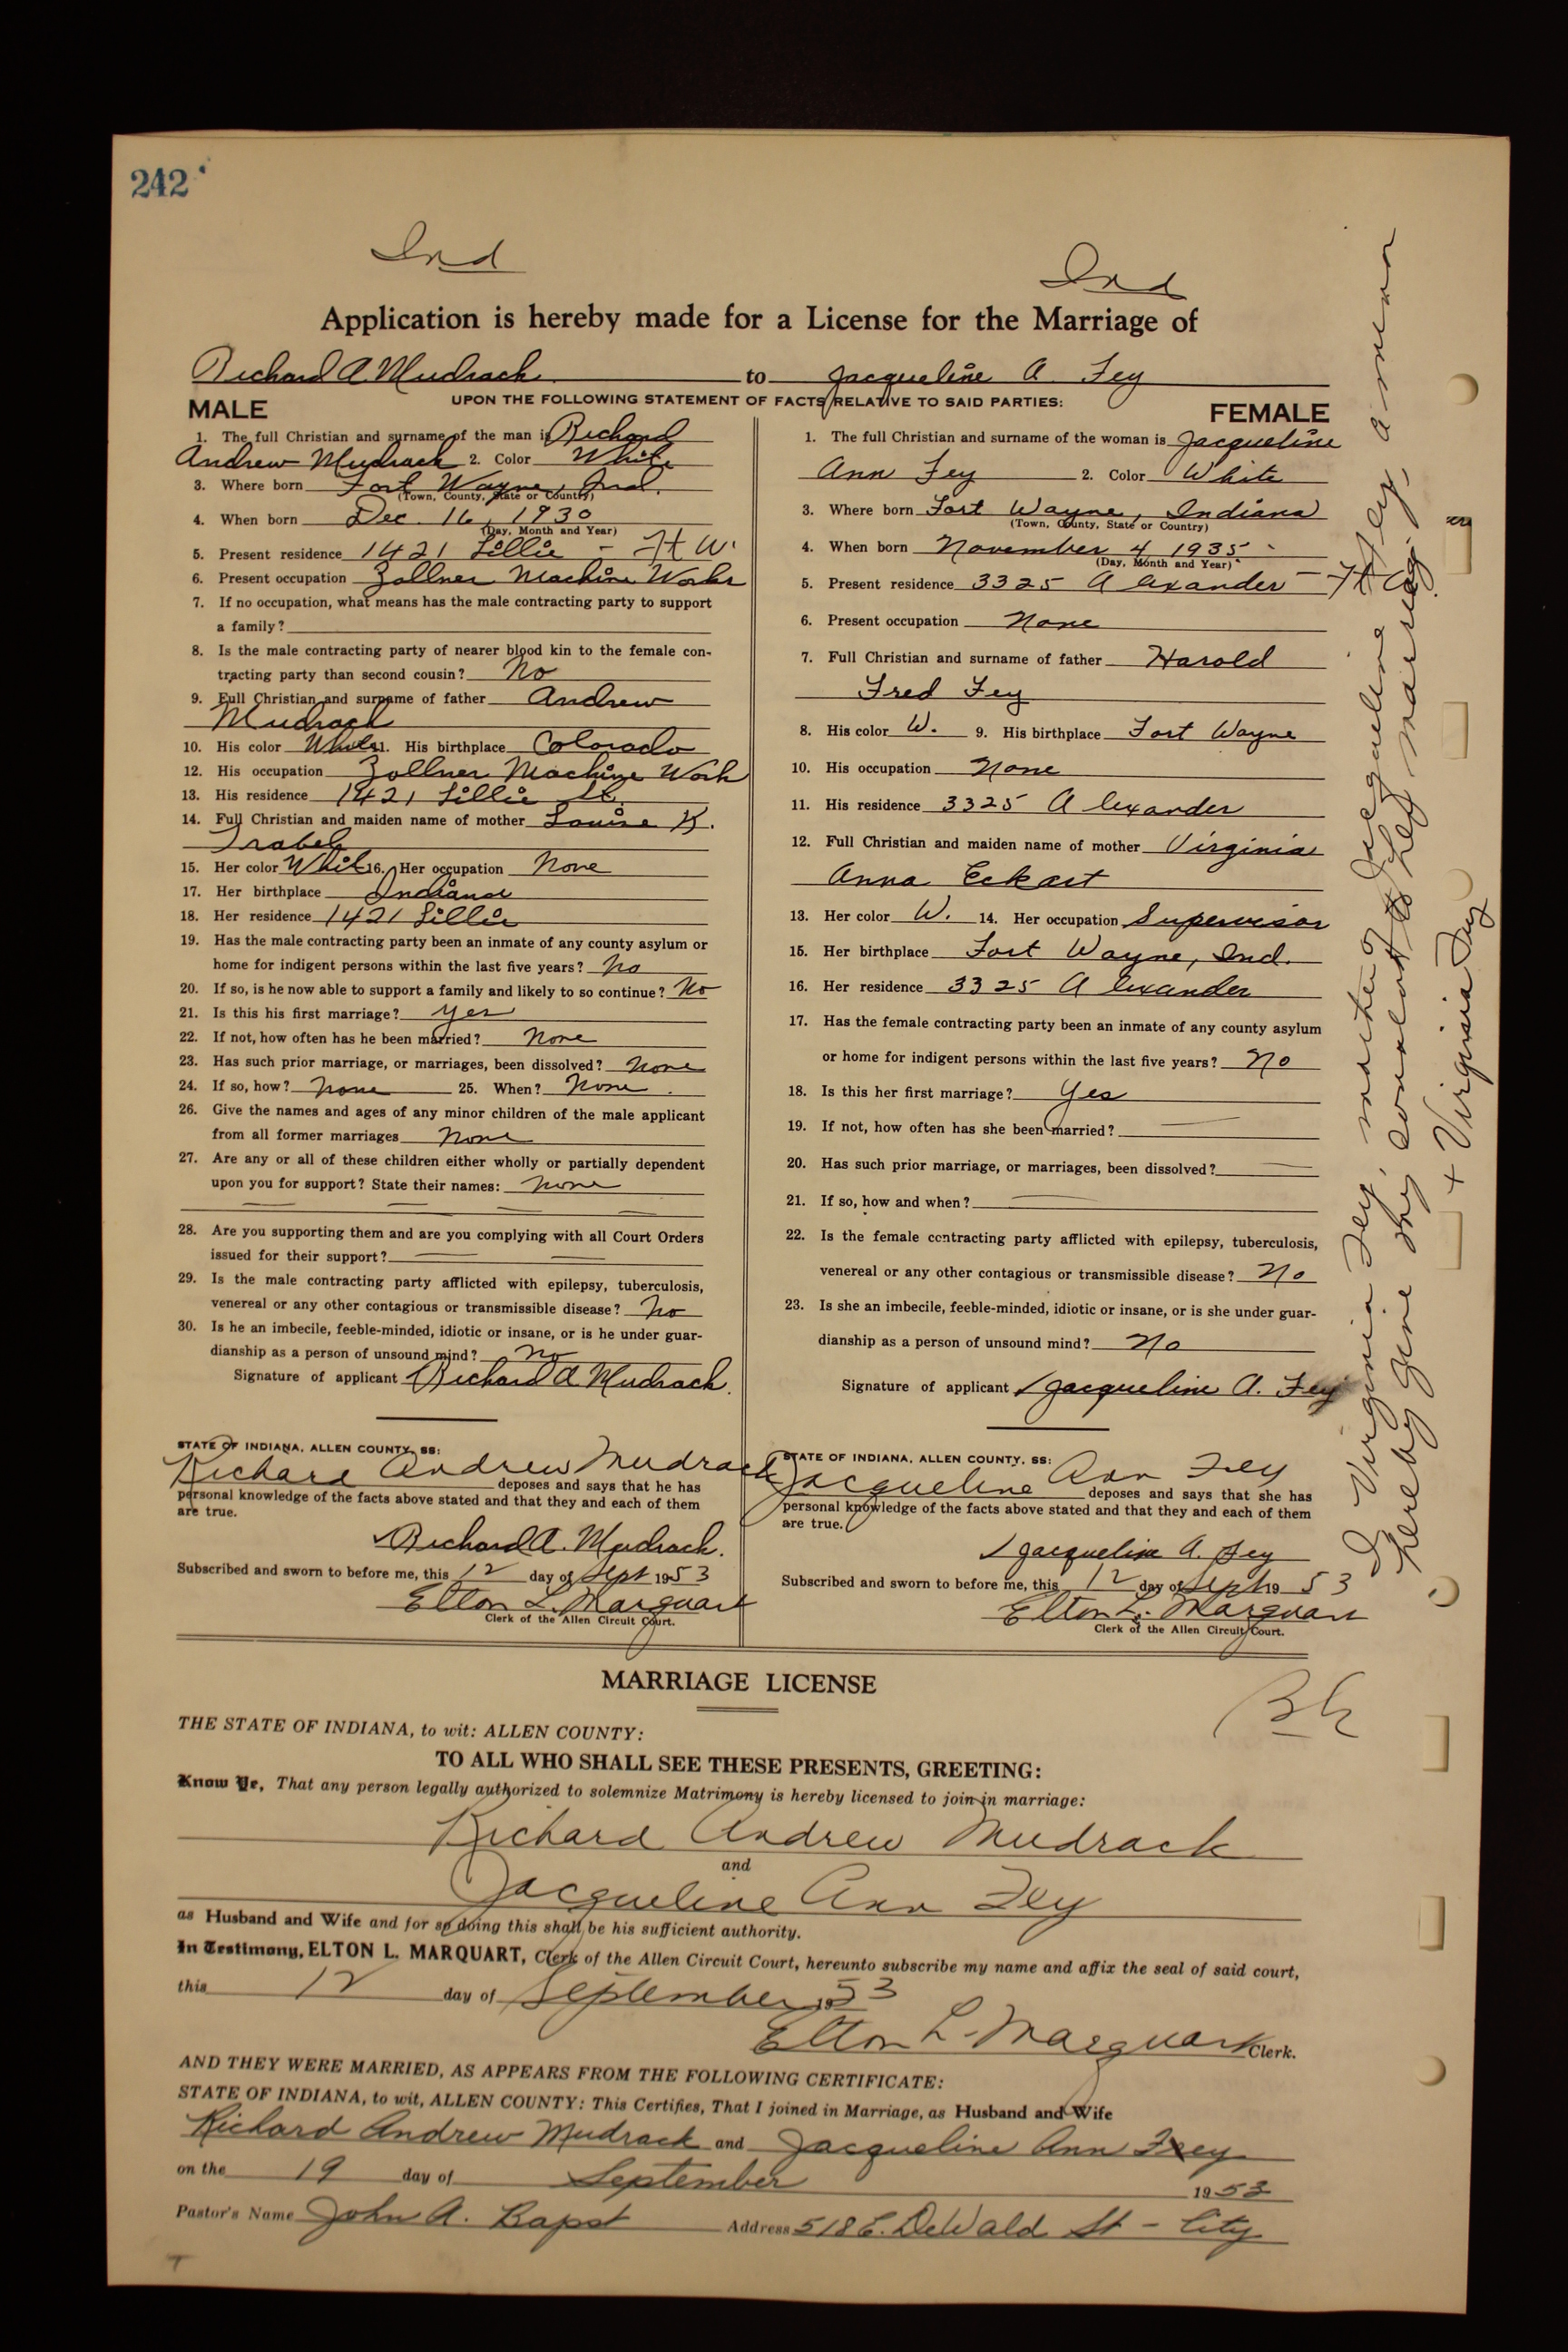 242
Ind
Ind
Application is hereby made for a License for the Marriage of
Richard A Mudrack to Jacqueline A. Fey
UPON THE FOLLOWING STATEMENT OF FACTS RELATIVE TO SAID PARTIES:
MALE
1. The full Christian and surname of the man is Richard
Andrew Mudrack 2. Color White
3. Where born Fort Wayne, Ind.
(Town, County, State or Country)
4. When born Dec. 16, 1930
(Day, Month and Year)
5. Present residence 1421 Lillie - Ft W.
6. Present occupation Zollner Machine Works
7. If no occupation, what means has the male contracting party to support
a family?
8. Is the male contracting party of nearer blood kin to the female con-
tracting party than second cousin? No
9. Full Christian and surname of father Andrew
Mudrack
10. His color White 11. His birthplace Colorado
12. His occupation Zollner Machine Work
13. His residence 1421 Lillie St.
14. Full Christian and maiden name of mother Louise K.
Trabel
15. Her color White 16. Her occupation None
17. Her birthplace Indiana
18. Her residence 1421 Lillie
19. Has the male contracting party been an inmate of any county asylum or
home for indigent persons within the last five years? No
20. If so, is he now able to support a family and likely to so continue? No
21. Is this his first marriage? Yes
22. If not, how often has he been married? None
23. Has such prior marriage, or marriages, been dissolved? None
24. If so, how? None 25. When? None
26. Give the names and ages of any minor children of the male applicant
from all former marriages None
27. Are any or all of these children either wholly or partially dependent
upon you for support? State their names: None
28. Are you supporting them and are you complying with all Court Orders
issued for their support?
29. Is the male contracting party afflicted with epilepsy, tuberculosis,
venereal or any other contagious or transmissible disease? No
30. Is he an imbecile, feeble-minded, idiotic or insane, or is he under guar-
dianship as a person of unsound mind? No
Signature of applicant Richard A Mudrack.
STATE OF INDIANA, ALLEN COUNTY, SS:
Richard Andrew Mudrack deposes and says that he has
personal knowledge of the facts above stated and that they and each of them
are true.
Richard A. Mudrack.
Subscribed and sworn to before me, this 12 day of Sept 1953
Elton L. Marquart
Clerk of the Allen Circuit Court.
FEMALE
1. The full Christian and surname of the woman is Jacqueline
Ann Fey 2. Color White
3. Where born Fort Wayne, Indiana
(Town, County, State or Country)
4. When born November 4 1935
(Day, Month and Year)
5. Present residence 3325 Alexander - Ft W.
6. Present occupation None
7. Full Christian and surname of father Harold
Fred Fey
8. His color W. 9. His birthplace Fort Wayne
10. His occupation None
11. His residence 3325 Alexander
12. Full Christian and maiden name of mother Virginia
Anna Eckart
13. Her color W. 14. Her occupation Supervisor
15. Her birthplace Fort Wayne, Ind.
16. Her residence 3325 Alexander
17. Has the female contracting party been an inmate of any county asylum
or home for indigent persons within the last five years? No
18. Is this her first marriage? Yes
19. If not, how often has she been married?
20. Has such prior marriage, or marriages, been dissolved?
21. If so, how and when?
22. Is the female contracting party afflicted with epilepsy, tuberculosis,
venereal or any other contagious or transmissible disease? No
23. Is she an imbecile, feeble-minded, idiotic or insane, or is she under guar-
dianship as a person of unsound mind? No
Signature of applicant Jacqueline A. Fey
STATE OF INDIANA, ALLEN COUNTY, SS:
Jacqueline Ann Fey deposes and says that she has
personal knowledge of the facts above stated and that they and each of them
are true.
Jacqueline A. Fey
Subscribed and sworn to before me, this 12 day of Sept 1953
Elton L. Marquart
Clerk of the Allen Circuit Court.
I Virginia Fey, mother of Jacqueline Fey, a minor
hereby give my consent to her marriage.
+ Virginia Fey
MARRIAGE LICENSE
THE STATE OF INDIANA, to wit: ALLEN COUNTY:
TO ALL WHO SHALL SEE THESE PRESENTS, GREETING:
Know Ye, That any person legally authorized to solemnize Matrimony is hereby licensed to join in marriage:
Richard Andrew Mudrack
and
Jacqueline Ann Fey
as Husband and Wife and for so doing this shall be his sufficient authority.
In Testimony, ELTON L. MARQUART, Clerk of the Allen Circuit Court, hereunto subscribe my name and affix the seal of said court,
this 12 day of September 1953
Elton L. Marquart Clerk.
AND THEY WERE MARRIED, AS APPEARS FROM THE FOLLOWING CERTIFICATE:
STATE OF INDIANA, to wit, ALLEN COUNTY: This Certifies, That I joined in Marriage, as Husband and Wife
Richard Andrew Mudrack and Jacqueline Ann Fey
on the 19 day of September 1953
Pastor's Name John A. Bapst Address 518 E. DeWald St - City